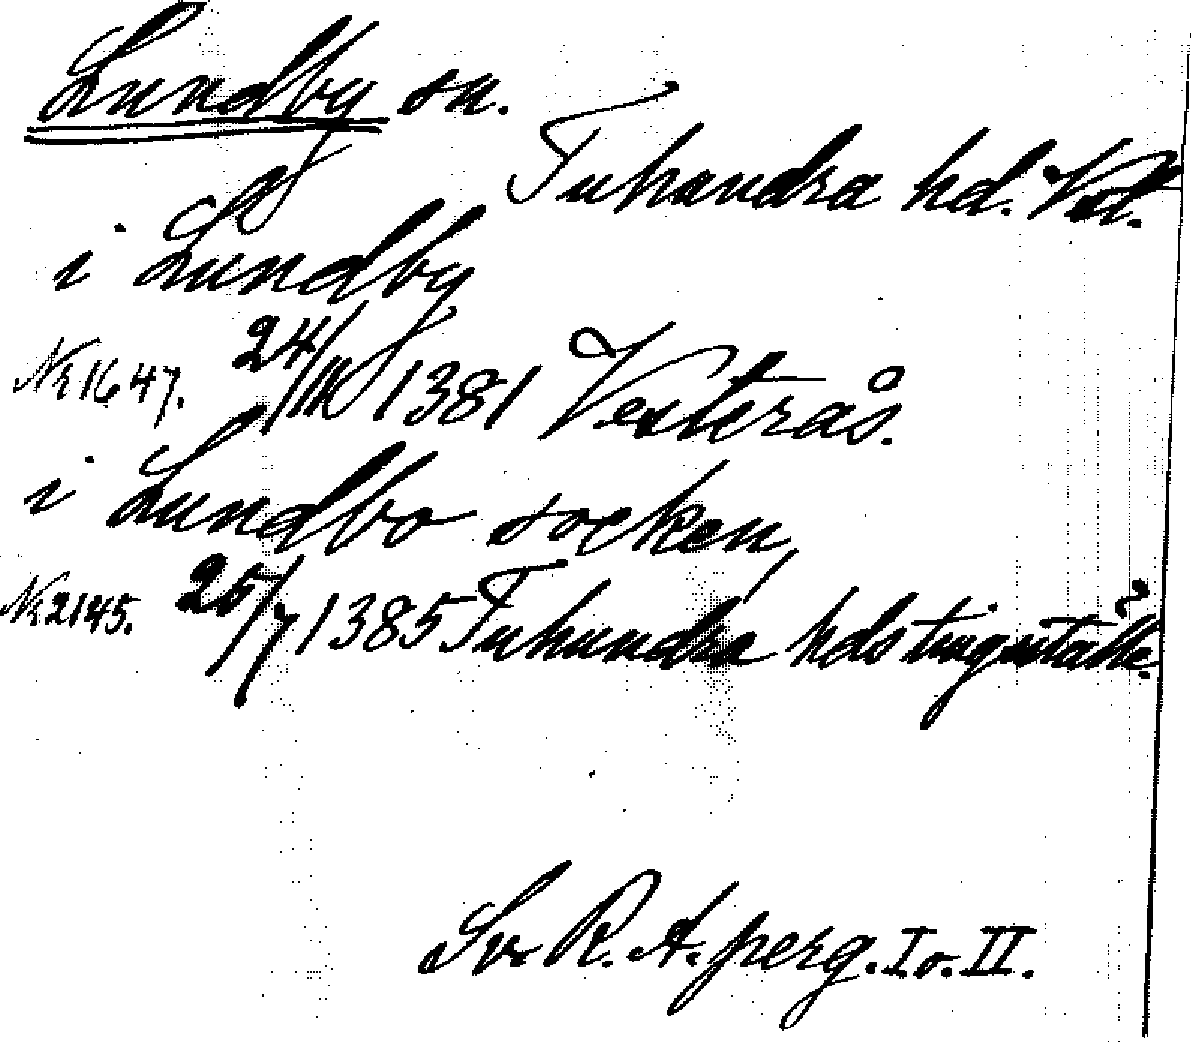 Lundby sn.
Tuhundra hd. Vstl.
i Lundby
Nr 1647. 24/III 1381 Vesterås.
i Lundbo socken,
Nr 2145. 25/7 1385 Tuhundra hds tingställe.
Sv. R. A. perg. I o. II.